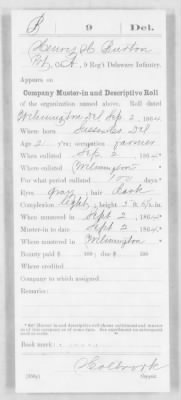 B 9 Del.
Henry H. Burton
Pvt, Co. A, 9 Reg't Delaware Infantry.
Appears on
Company Muster-in and Descriptive Roll
of the organization named above. Roll dated
Wilmington Del Sep 2, 1864.
Where born Sussex Co Del
Age 2 y'rs; occupation farmer
When enlisted Sep 2, 1864.
Where enlisted Wilmington
For what period enlisted 100 days
Eyes gray, hair Dark
Complexion light, height 5 ft. in.
When mustered in Sept 2, 1864.
Muster-in to date Sept 2, 1864.
Where mustered in Wilmington
Bounty paid $ 100; due $ 100
Where credited
Company to which assigned
Remarks:
Book mark:
Holbrook
(356g) Copyist.